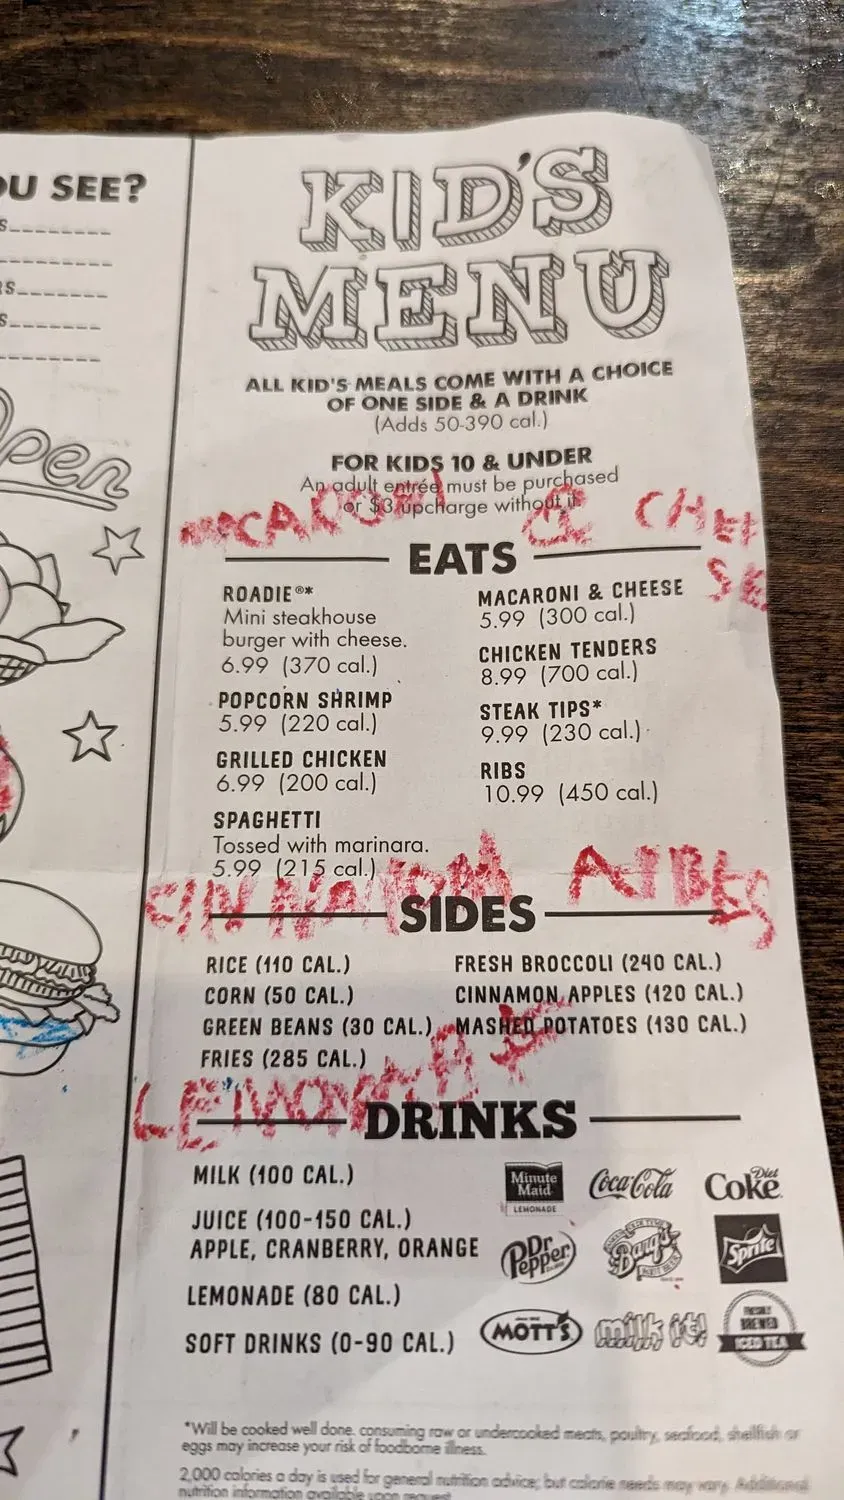 OU SEE?
S
RS
S
Open
KID'S
MENU
ALL KID'S MEALS COME WITH A CHOICE
OF ONE SIDE & A DRINK
(Adds 50-390 cal.)
FOR KIDS 10 & UNDER
An adult entrée must be purchased
or $3 upcharge without it.
MACARONI & CHEE
SE
EATS
ROADIE®*
Mini steakhouse
burger with cheese.
6.99 (370 cal.)
POPCORN SHRIMP
5.99 (220 cal.)
GRILLED CHICKEN
6.99 (200 cal.)
SPAGHETTI
Tossed with marinara.
5.99 (215 cal.)
MACARONI & CHEESE
5.99 (300 cal.)
CHICKEN TENDERS
8.99 (700 cal.)
STEAK TIPS*
9.99 (230 cal.)
RIBS
10.99 (450 cal.)
CINNAMON
SIDES
RICE (110 CAL.)
CORN (50 CAL.)
GREEN BEANS (30 CAL.)
FRIES (285 CAL.)
FRESH BROCCOLI (240 CAL.)
CINNAMON APPLES (120 CAL.)
MASHED POTATOES (130 CAL.)
DRINKS
MILK (100 CAL.)
JUICE (100-150 CAL.)
APPLE, CRANBERRY, ORANGE
LEMONADE (80 CAL.)
SOFT DRINKS (0-90 CAL.)
Minute
Maid
LEMONADE
Coca-Cola
Diet
Coke
Dr
Pepper
Barq's
Sprite
MOTT'S
milk it!
FRESHLY
BREWED
ICED TEA
*Will be cooked well done. consuming raw or undercooked meats, poultry, seafood, shellfish or
eggs may increase your risk of foodborne illness.
2,000 calories a day is used for general nutrition advice; but calorie needs may vary. Additional
nutrition information available upon request.